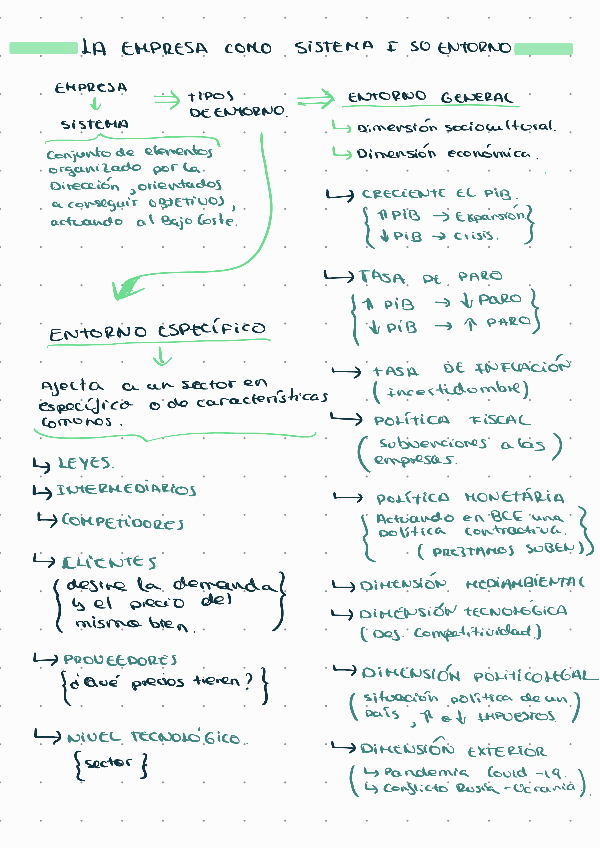 LA EMPRESA COMO SISTEMA Y SU ENTORNO
EMPRESA
↓
SISTEMA
Conjunto de elementos
organizado por la
Dirección, orientados
a conseguir OBJETIVOS,
actuando al Bajo Coste.
⇒ TIPOS
DE ENTORNO.
ENTORNO ESPECÍFICO
↓
Afecta a un sector en
específico o de características
comunes.
↳ LEYES.
↳ INTERMEDIARIOS
↳ COMPETIDORES
↳ CLIENTES
{ define la demanda
y el precio del
mismo bien. }
↳ PROVEEDORES
{ ¿Qué precios tienen? }
↳ NIVEL TECNOLÓGICO.
{ sector }
⇒ ENTORNO GENERAL
↳ Dimensión sociocultural.
↳ Dimensión económica.
↳ CRECIENTE EL PIB.
{ ↑ PIB → Expansión
↓ PIB → Crisis. }
↳ TASA DE PARO
{ ↑ PIB → ↓ PARO
↓ PIB → ↑ PARO }
↳ TASA DE INFLACIÓN
(incertidumbre)
↳ POLÍTICA FISCAL
(subvenciones a las
empresas.)
↳ POLÍTICA MONETÁRIA
{ Actuando en BCE una
política contractiva.
(PRESTAMOS SUBEN) }
↳ DIMENSIÓN MEDIAMBIENTAL
↳ DIMENSIÓN TECNOLÓGICA
(Des. Competitividad)
↳ DIMENSIÓN POLITICOLEGAL
(situación política de un
país, ↑ o ↓ IMPUESTOS)
↳ DIMENSIÓN EXTERIOR
(↳ Pandemia Covid-19.
↳ Conflicto Rusia-Ucrania)